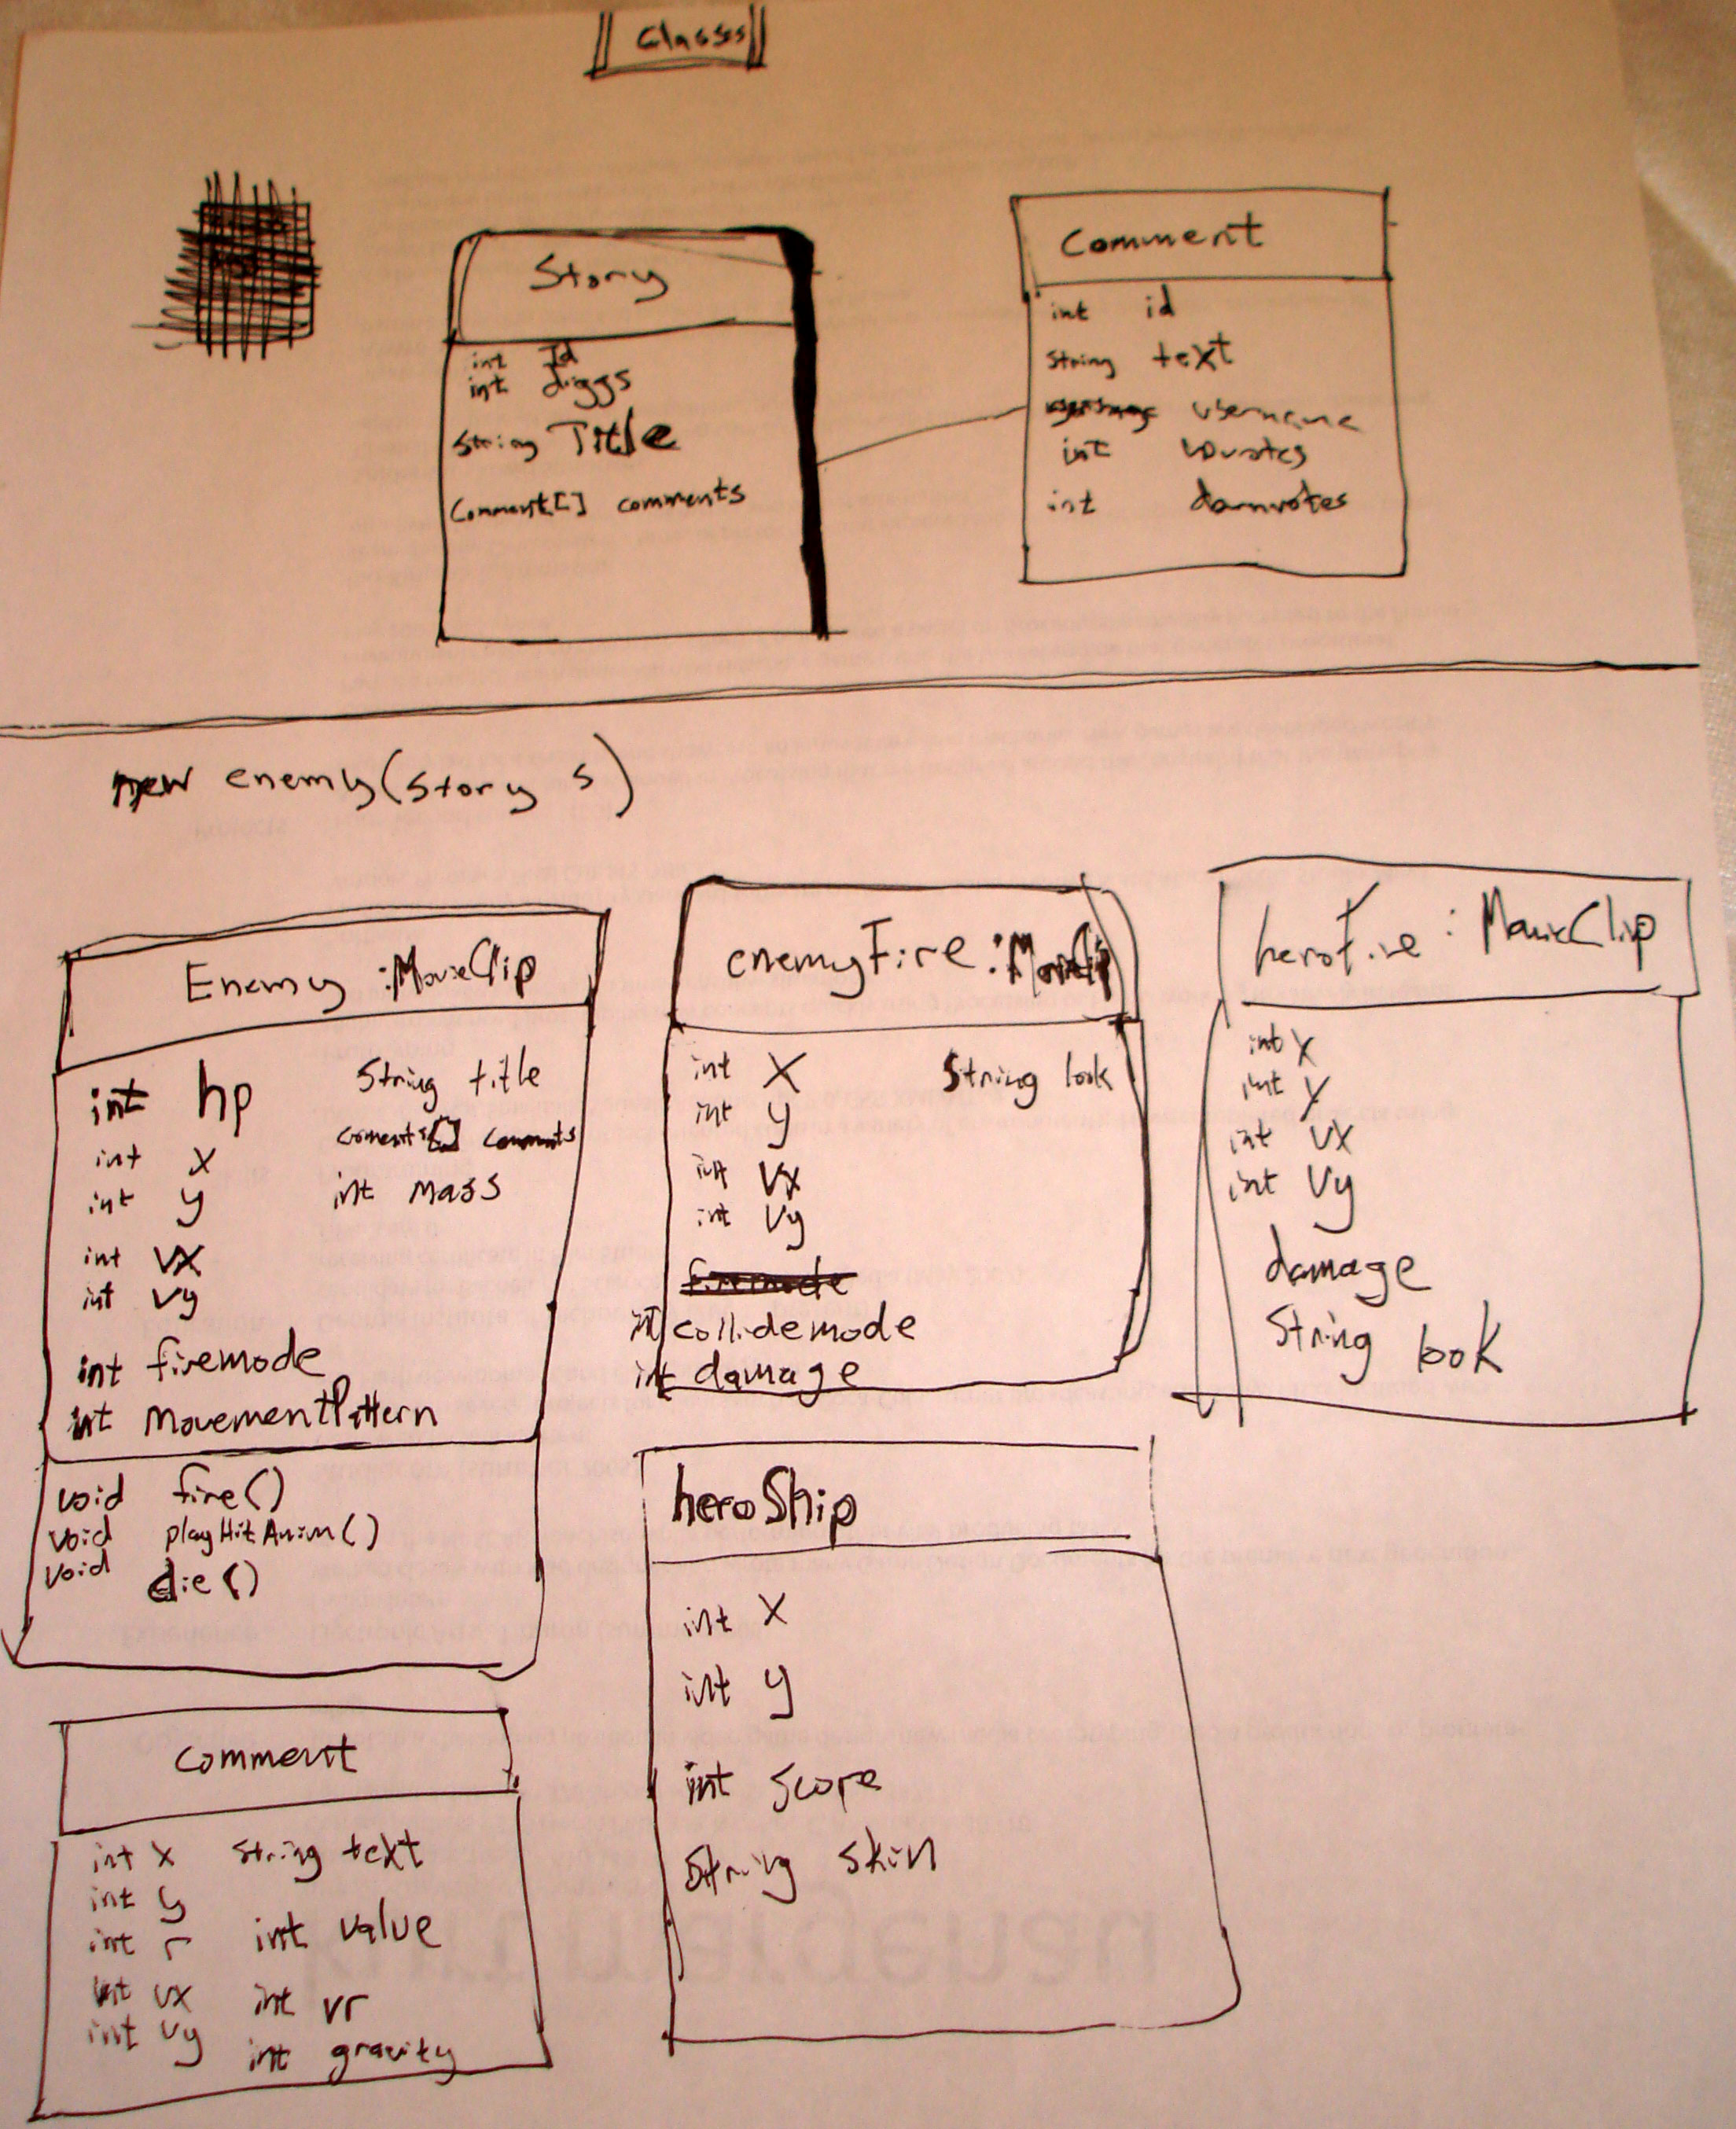 Classes
Story
int Id
int diggs
String Title
Comment[] comments
Comment
int id
String text
username
int upvotes
int downvotes
new enemy(Story s)
Enemy :MovieClip
int hp
int x
int y
int vx
int vy
int firemode
int MovementPattern
String title
coments[] comments
int mass
void fire()
void playHitAnim()
void die()
enemyFire :MovieClip
int X
int y
int vx
int vy
firemode
int collidemode
int damage
String look
heroFire : MovieClip
int x
int y
int vx
int vy
damage
String look
heroShip
int x
int y
int score
String skin
comment
int x
int y
int r
int vx
int vy
String text
int value
int vr
int gravity